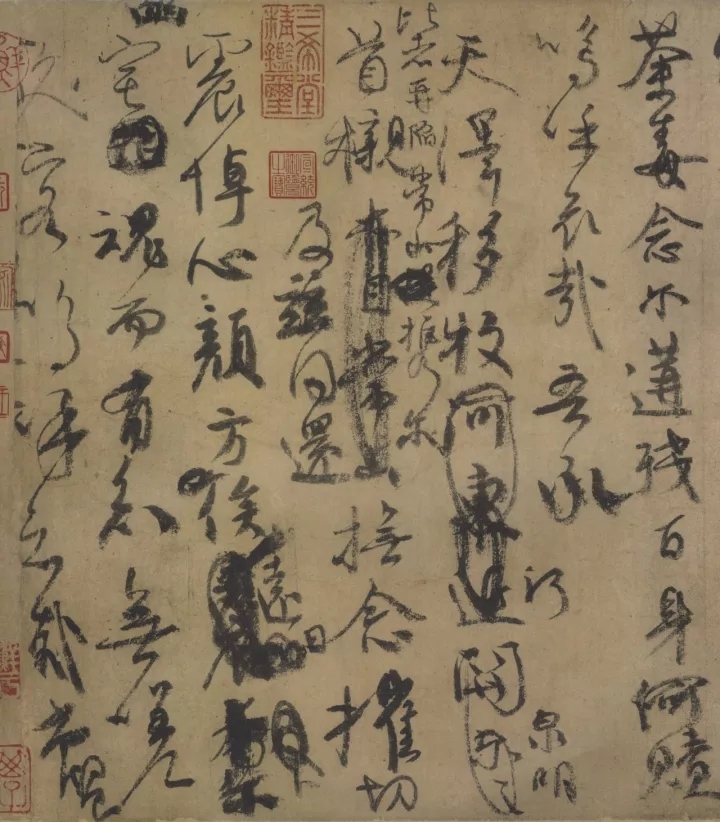 荼毒念尔遘残百身何贖
嗚呼哀哉吾承
天澤移牧河東近關
泉明
比者再陷常山攜尔
首櫬亦自常山撫念摧切
及茲同還
震悼心顏方俟
遠日
幽宅魂而有知無嗟
久客嗚呼哀哉尚饗
三希堂
精鑑璽